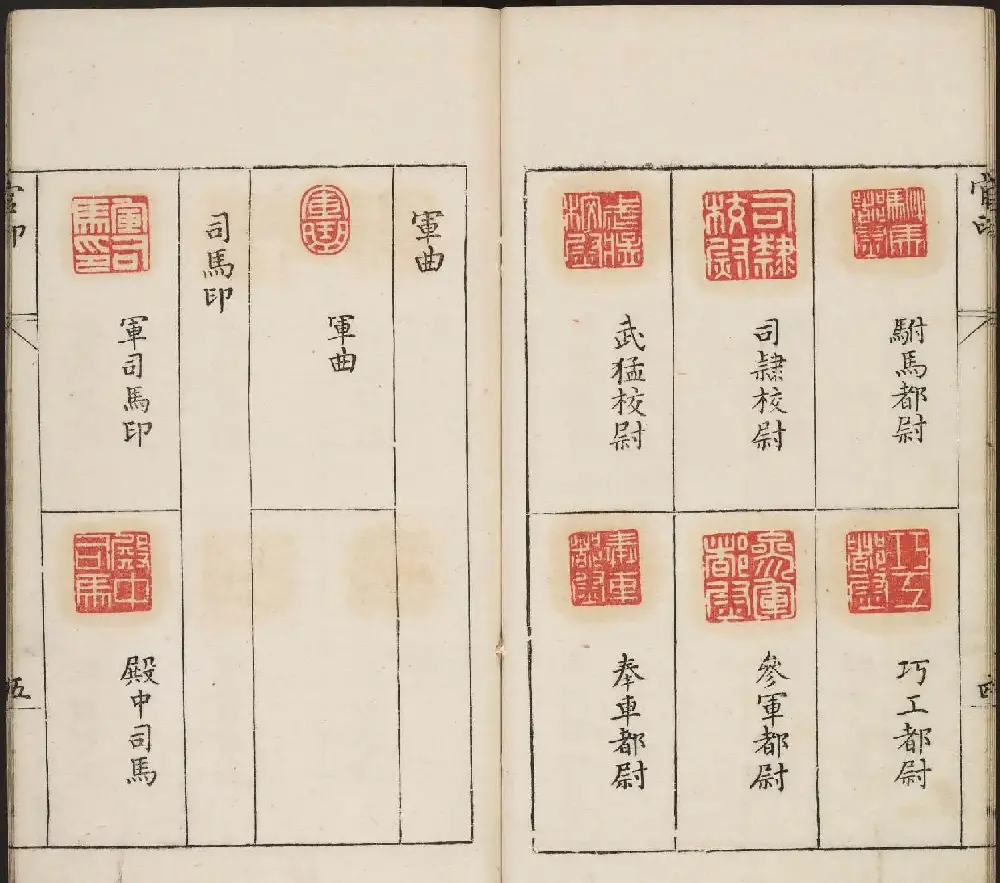 駙馬都尉
巧工都尉
司隸校尉
參軍都尉
武猛校尉
奉車都尉
軍曲
軍曲
司馬印
軍司馬印
軍司馬印
殿中司馬
殿中司馬
伍